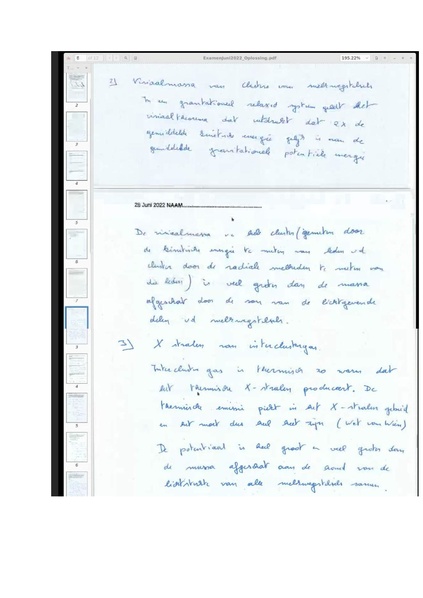 ExamenJuni2022_Oplossing.pdf
195.22%
2) Viriaalmassa van cluster van melkwegstelsels
In een gravitationeel relaxed systeem geldt het
viriaaltheorema dat uitdrukt dat 2x de
gemiddelde kinetische energie gelijk is aan de
gemiddelde gravitationele potentiële energie
28 Juni 2022 NAAM:
De viriaalmassa van de cluster (gemeten door
de kinetische energie te meten van leden vd
cluster door de radiële snelheden te meten van
die leden) is veel groter dan de massa
afgeschat door de som van de lichtgevende
delen vd melkwegstelsels.
3) X stralen van interclustergas.
Intercluster gas is thermisch zo warm dat
het thermische X-stralen produceert. De
thermische emissie piekt in het X-stralen gebied
en het moet dus heel heet zijn (wet van Wien)
De potentiaal is heel groot en veel groter dan
de massa afgeschat aan de hand van de
lichtsterkte van alle melkwegstelsels samen.